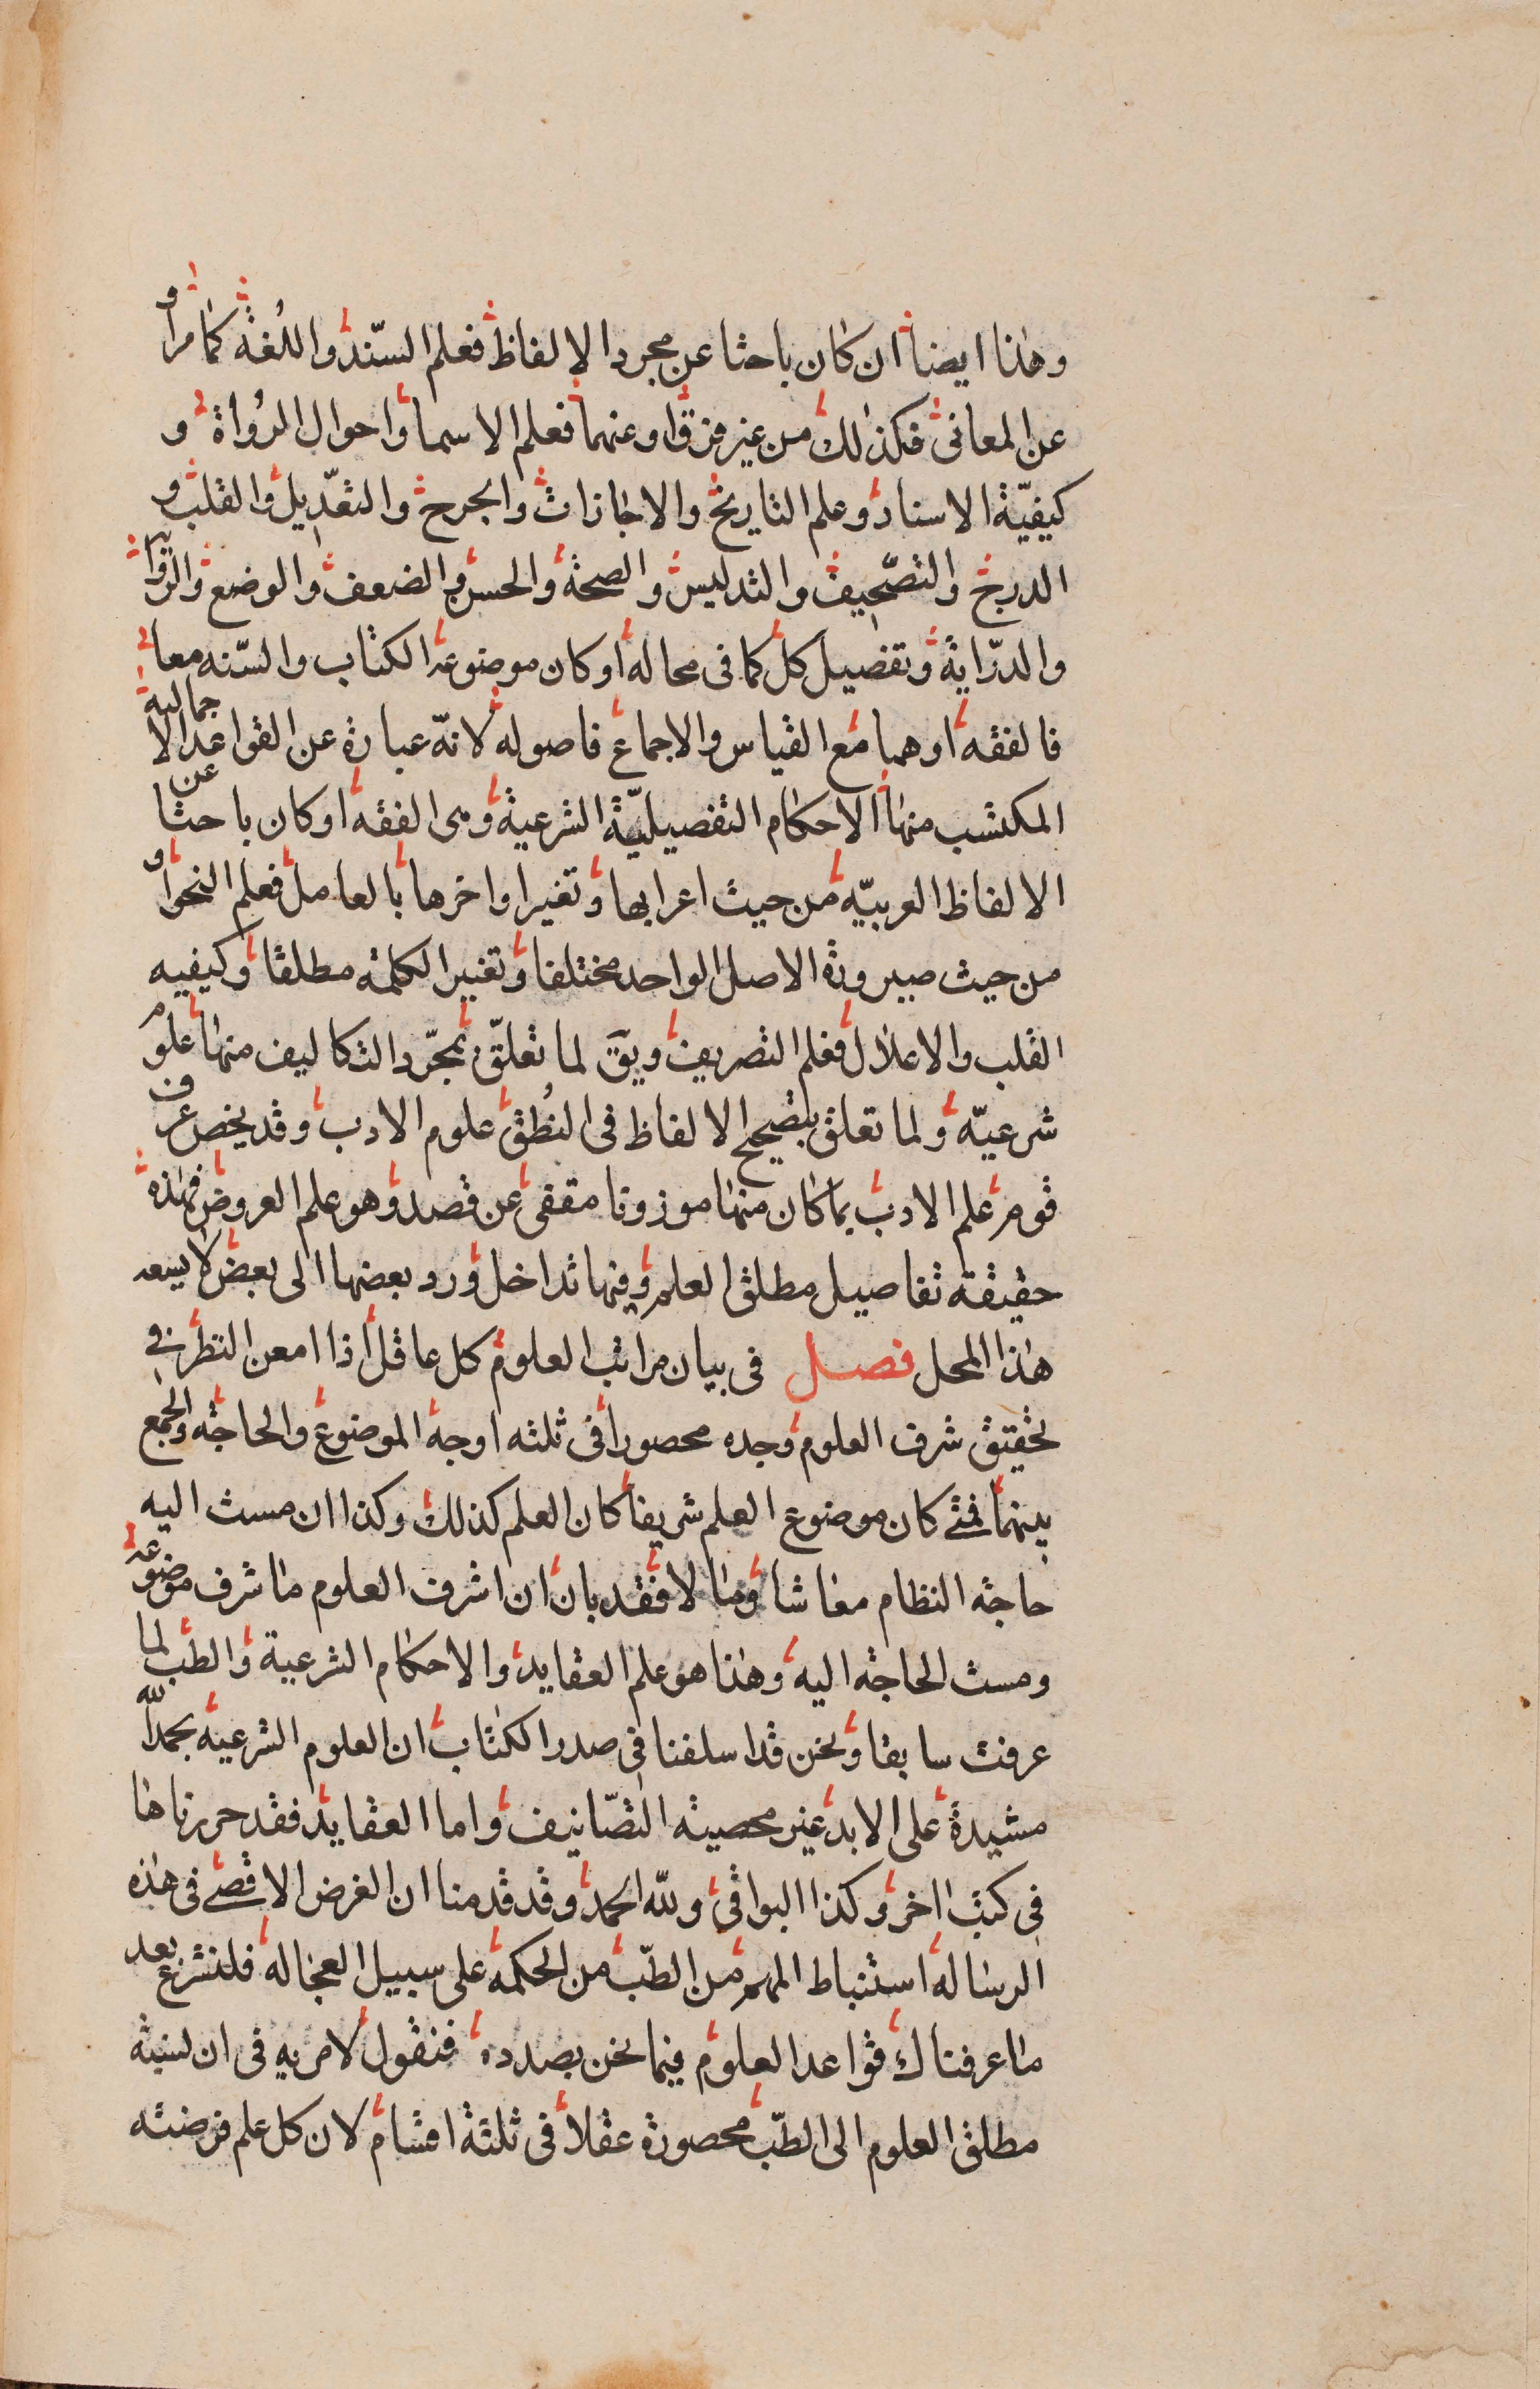 وهذا ايضا ان كان باحثا عن مجرد الالفاظ فعلم السّند واللُغة كما مر او
عن المعانى فكذلك من غير فرق او عنهما فعلم الاسما واحوال الرُواة و
كيفيّة الاسناد وعلم التاريخ والاجازات والجرح والتعّديل والقلب و
الدرج والتصّحيف والتدليس والصحة والحسن والضعف والوضع والرّواية
والدّراية وتفصيل كل كما فى محاله او كان موضوعه الكتاب والسّنه معا
فالفقه او هما مع القياس والاجماع فاصوله لانه عبارة عن القواعد الاجمالية
المكتسب منها الاحكام التفصيليّة الشرعية وهى الفقه او كان باحثا عن
الالفاظ العربيّه من حيث اعرابها وتغير اواخرها بالعامل فعلم النحو او
من حيث صيرورة الاصل الواحد مختلفا وتغيير الكلمه مطلقا وكيفيه
القلب والاعلال فعلم التصريف ويق لما تعلقّ بمجّرد التكاليف منها علوم
شرعيّه ولما تعلق بتصحيح الالفاظ فى النُطق علوم الادب وقد يخص عرف
قوم علم الادب بما كان منها موزونا مقفى عن قصد وهو علم العروض فهذه
حقيقة تفاصيل مطلق العلم وفيها تداخل ورد بعضها الى بعض لا يسعه
هذا المحل فصل فى بيان مراتب العلوم كل عاقل اذا امعن النظر فى
تحقيق شرف العلوم وجده محصورا فى ثلثه اوجه الموضوع والحاجة والجمع
بينهما فمتى كان موضوع العلم شريفا كان العلم كذلك وكذا ان مست اليه
حاجة النظام معاشا ومالا فقد بان ان اشرف العلوم ما شرف موضوعه
ومست الحاجة اليه وهذا هو علم العقايد والاحكام الشرعية والطب لما
عرفت سابقا ونحن قد اسلفنا فى صدر الكتاب ان العلوم الشرعيه بحمد الله
مشيدة على الابد غير محصيه التصّانيف واما العقايد فقد حررناها
فى كتب اخر وكذا البواقى ولله الحمد وقد قدمنا ان الغرض الاقصى فى هذه
الرساله استنباط المهم من الطبّ من الحكمة على سبيل العجاله فلنشرع بعد
ما عرفناك قواعد العلوم فيما نحن بصدده فنقول لا مريه فى ان نسبة
مطلق العلوم الى الطبّ محصورة عقلا فى ثلثة اقسام لان كل علم فرضته